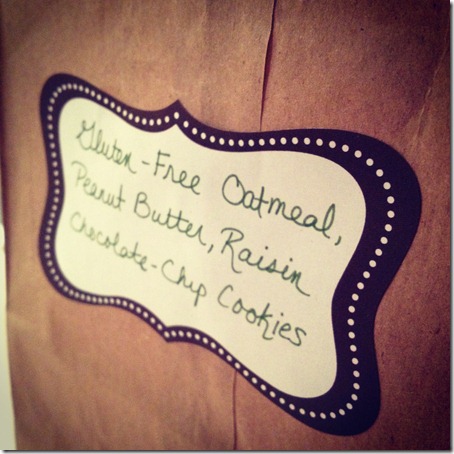 Gluten-Free Oatmeal,
Peanut Butter, Raisin
Chocolate-Chip Cookies